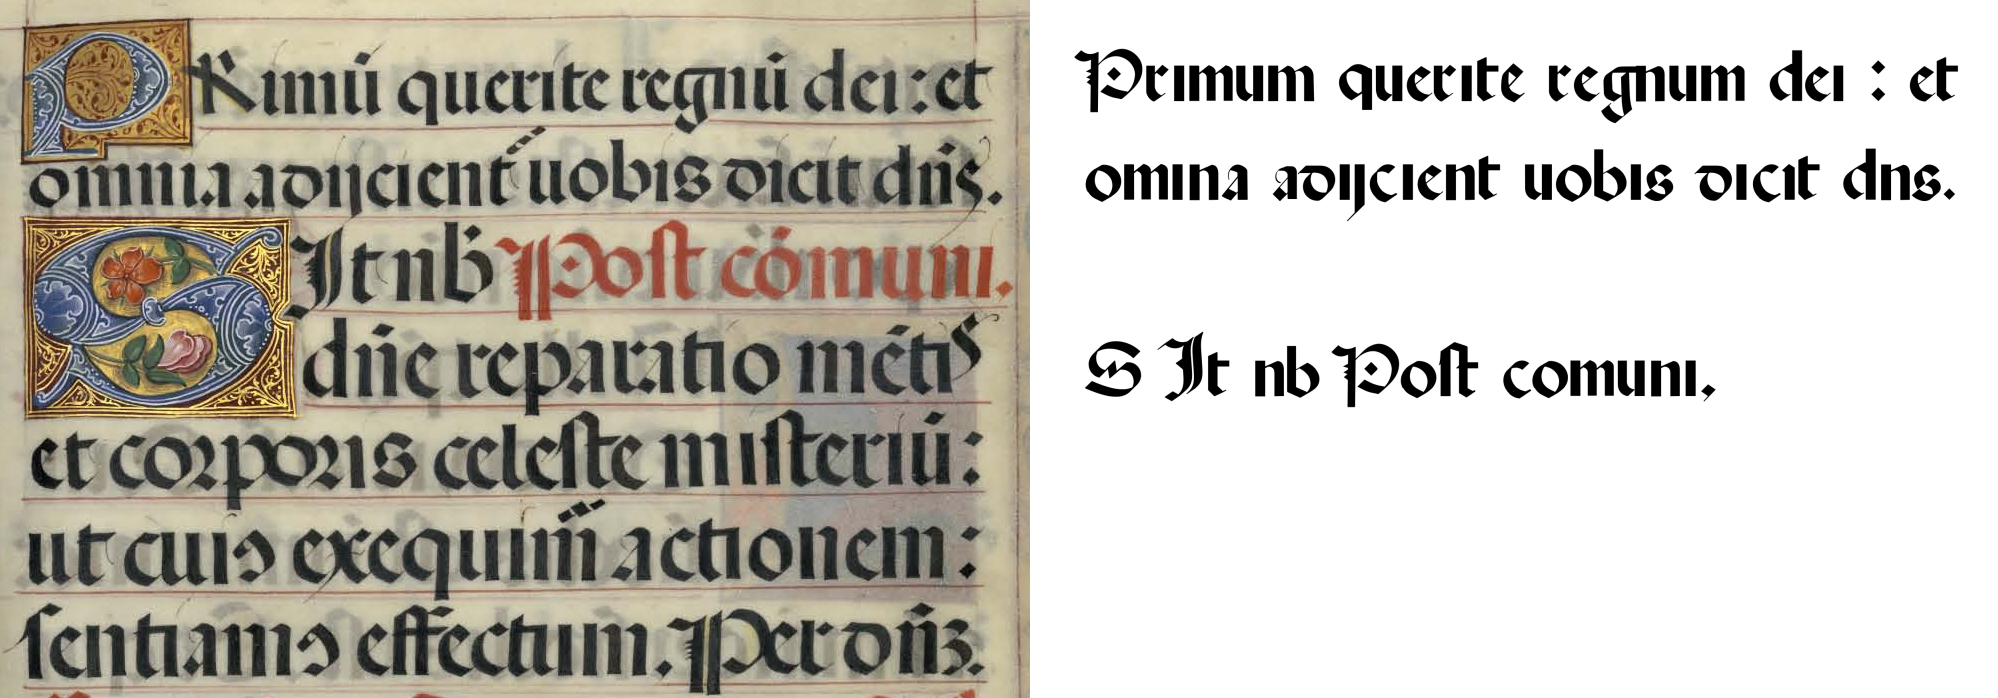 PRimū querite regnū dei : et
omnia adijcient uobis dicit dñs.
SIt nb̄ Post cōmuni.
dñe reparatio mētis
et corporis celeste misteriū :
ut cuius exequim̄ actionem :
sentiamus effectum. Per dñz.
Primum querite regnum dei : et
omina adijcient uobis dicit dns.
S It nb Post comuni,